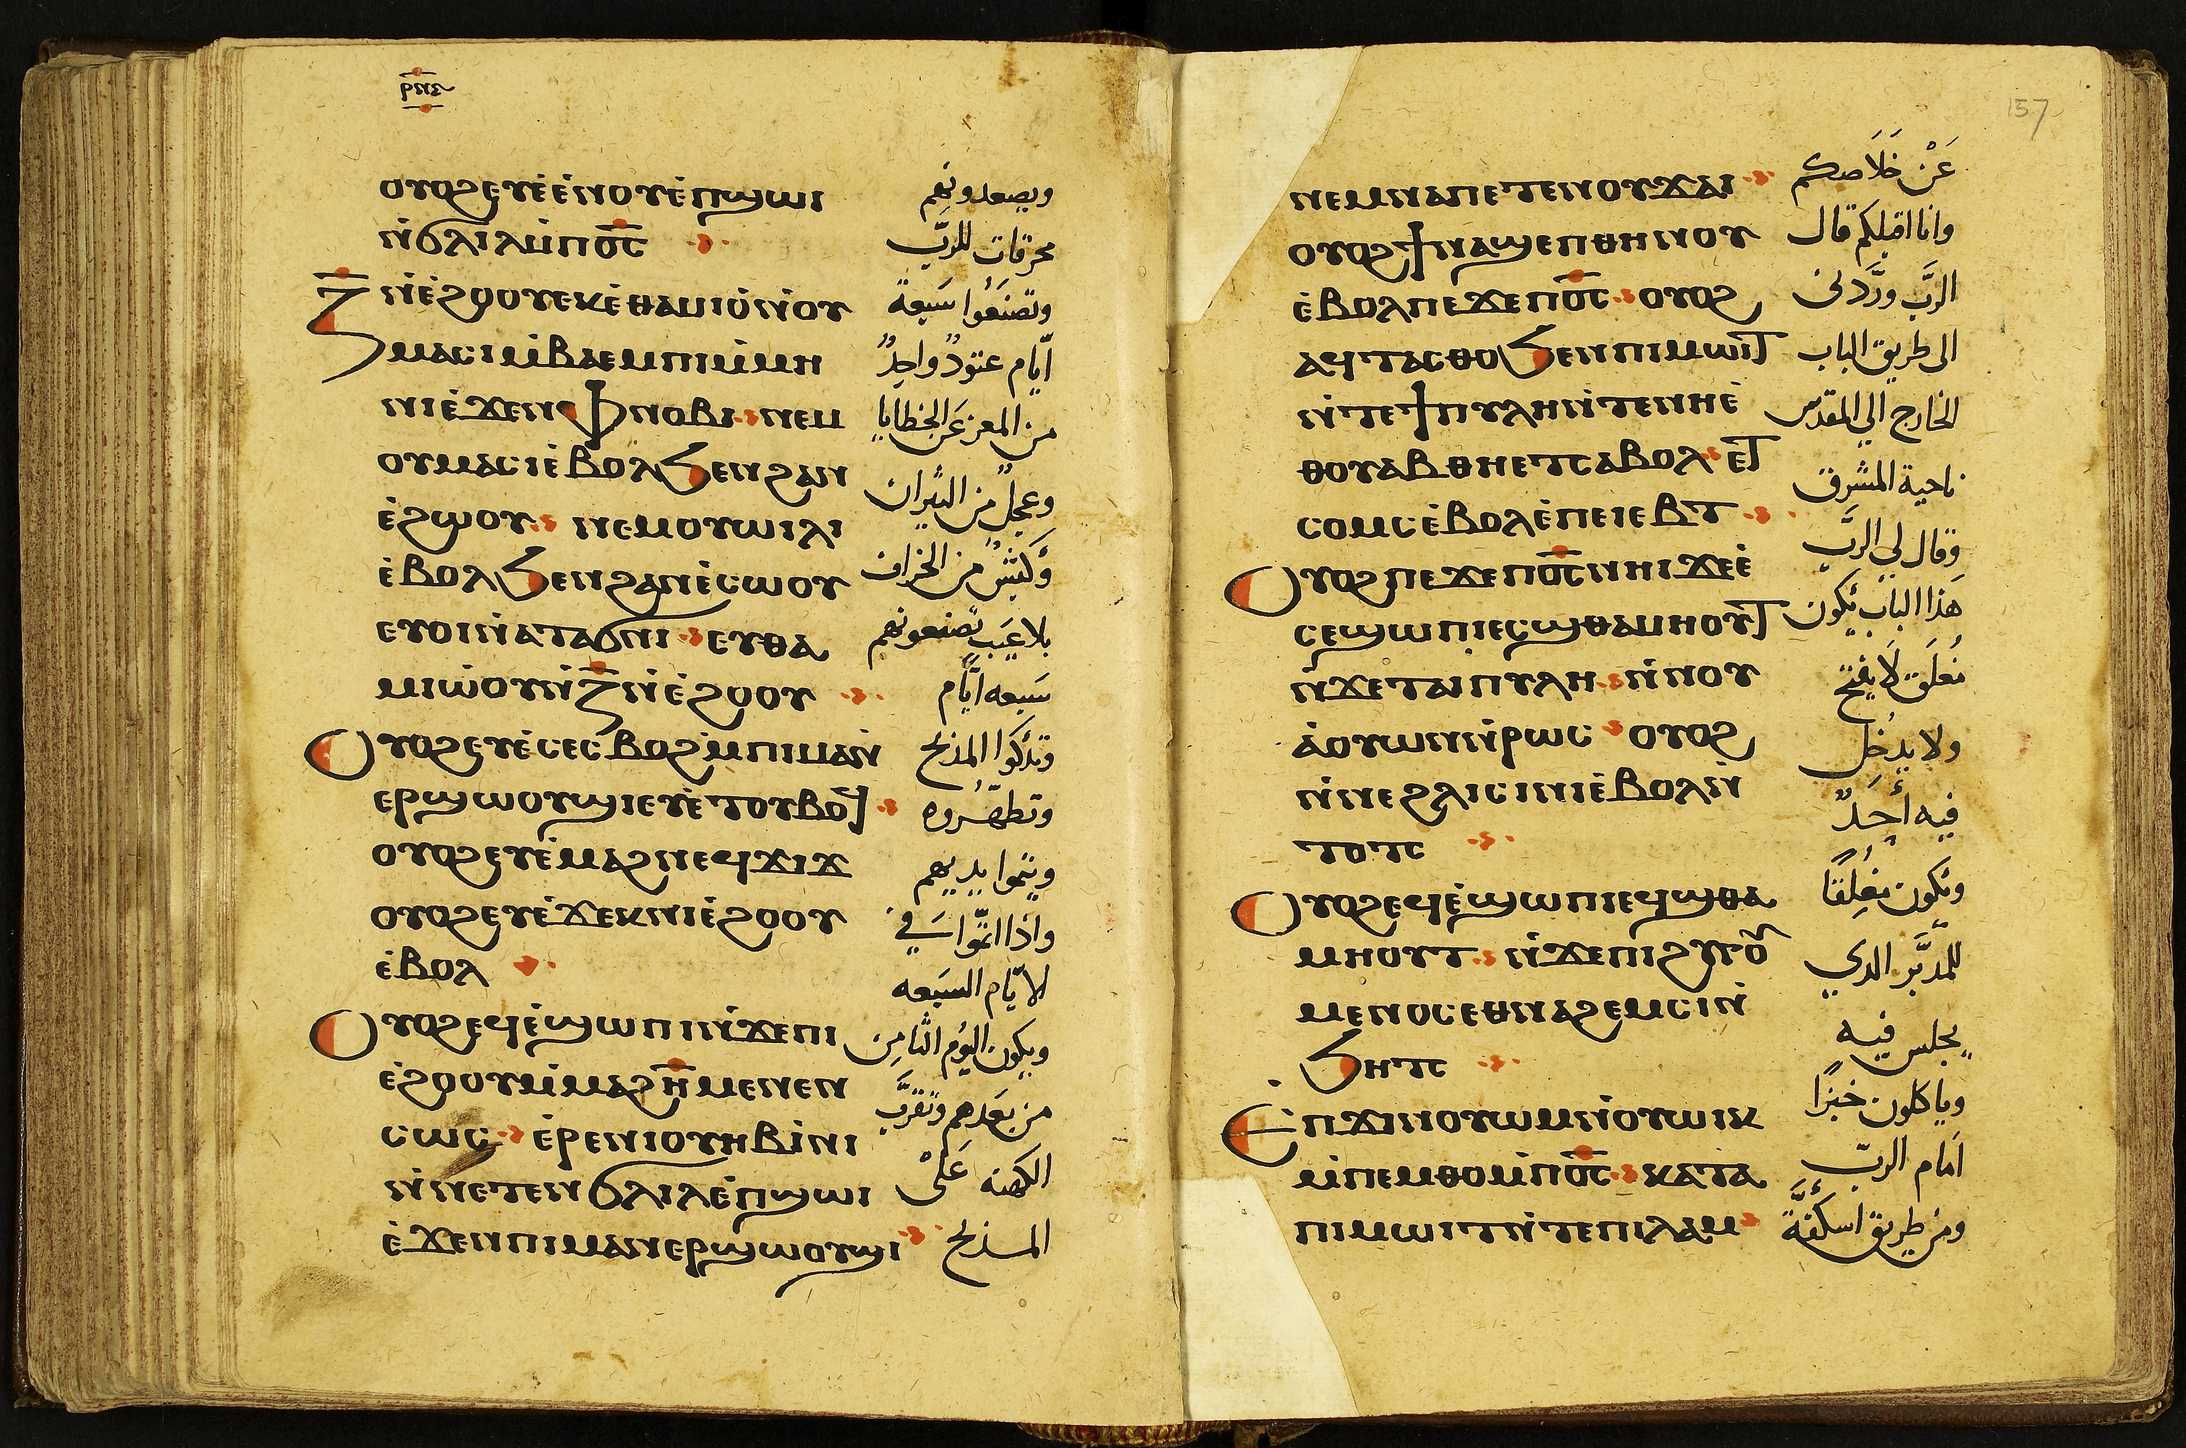 ⲣⲛⲋ
ⲟⲩⲟϩⲉⲩⲉ̀ⲉ̀ⲛⲟⲩⲉ̀ⲡϣⲱⲓ
ⲛ̀ϭⲗⲓⲗⲙ̀ⲡⲟ̅ⲥ̅
ⲍ̅ⲛ̀ⲉ̀ϩⲟⲟⲩⲉⲕⲉ̀ⲑⲁⲙⲓⲟ̀ⲛ̀ⲟⲩ
ⲙⲁⲥⲓⲙ̀ⲃⲁⲉⲙⲡⲓⲙ̀ⲙⲏ
ⲛⲓⲉ̀ϫⲉⲛⲫⲛⲟⲃⲓ ⲛⲉⲙ
ⲟⲩⲙⲁⲥⲓⲉ̀ⲃⲟⲗϧⲉⲛϩⲁⲛ
ⲉ̀ϩⲱⲟⲩ ⲛⲉⲙⲟⲩⲱⲓⲗⲓ
ⲉ̀ⲃⲟⲗϧⲉⲛϩⲁⲛⲉ̀ⲥⲱⲟⲩ
ⲉⲩⲟⲓⲛ̀ⲁⲧⲁϭⲛⲓ ⲉⲩⲑⲁ
ⲙⲓⲱ̀ⲟⲩⲛ̀ⲍ̅ⲛ̀ⲉ̀ϩⲟⲟⲩ
ⲟⲩⲟϩⲉⲩⲉ̀ⲥⲉⲥⲃⲟϩⲙ̀ⲡⲓⲙⲁⲛ̀
ⲉⲣϣⲱⲟⲩϣⲓⲉⲩⲉ̀ⲧⲟⲩⲃⲟϥ
ⲟⲩⲟϩⲉⲩⲉ̀ⲙⲁϩⲛⲉϥϫⲓϫ
ⲟⲩⲟϩⲉⲩⲉ̀ϫⲉⲕⲛⲓⲉ̀ϩⲟⲟⲩ
ⲉ̀ⲃⲟⲗ
ⲟⲩⲟϩⲉϥⲉ̀ϣⲱⲡⲓⲛ̀ϫⲉⲡⲓ
ⲉ̀ϩⲟⲟⲩⲙ̀ⲙⲁϩⲏ̅ⲙⲉⲛⲉⲛ
ⲥⲱⲥ ⲉ̀ⲣⲉⲛⲓⲟⲩⲏⲃⲓ̀ⲛⲓ
ⲛ̀ⲛⲉⲧⲉⲛϭⲗⲓⲗⲉ̀ⲡϣⲱⲓ
ⲉ̀ϫⲉⲛⲡⲓⲙⲁⲛⲉⲣϣⲱⲟⲩϣⲓ
ويصعدونهم
محرقات للرَّب
وتصنَعُوا سَبعةَ
ايَّام عتودٌ واحِدٌ
من المعز عَن الخطايا
وعجلٍ من الثيران
وَكبشٌ من الخراف
بلا عَيب تصنعونهم
سَبعه ايَّام
وتذكوا المذبح
وتطهّرُوه
ويتموا يديهم
واذا اتمّوا
الايّام السَبعه
ويكون اليوُم الثامِن
من بعَدهم وتقرَّب
الكهنه عَلىْ
المذبح
157
ⲛⲉⲙⲛⲁⲡⲉⲧⲉⲛⲟⲩϫⲁⲓ
ⲟⲩⲟϩϯⲛⲁϣⲉⲡⲑⲏⲛⲟⲩ
ⲉ̀ⲃⲟⲗⲡⲉϫⲉⲡⲟ̅ⲥ̅ ⲟⲩⲟϩ
ⲁϥⲧⲁⲥⲑⲟϧⲉⲛⲡⲓⲙⲱⲓⲧ
ⲛ̀ⲧⲉϯⲡⲩⲗⲏⲛ̀ⲧⲉⲛⲏⲉ̀
ⲑⲟⲩⲁⲃⲑⲏⲉⲧⲥⲁⲃⲟⲗ ⲉⲧ
ⲥⲟⲙⲥⲉ̀ⲃⲟⲗⲉ̀ⲡⲉⲓⲉⲃⲧ
ⲟⲩⲟϩⲡⲉϫⲉⲡⲟ̅ⲥ̅ⲛⲏⲓϫⲉⲉ̀
ⲥⲉϣⲱⲡⲓⲉⲥϣⲑⲁⲙⲏⲟⲩⲧ
ⲛ̀ϫⲉⲧⲁⲓⲡⲩⲗⲏ ⲛ̀ⲛⲟⲩ
ⲁ̀ⲟⲩⲱⲛⲛ̀ⲣⲱⲥ ⲟⲩⲟϩ
ⲛ̀ⲛⲉϩⲗⲓⲥⲓⲛⲓⲉ̀ⲃⲟⲗⲛ̀
ⲧⲟⲧⲥ
ⲟⲩⲟϩⲉϥⲉ̀ϣⲱⲡⲓⲉϥϣⲑⲁ
ⲙⲏⲟⲩⲧ ⲛ̀ϫⲉⲡⲓϩⲩⲅⲟⲩ
ⲙⲉⲛⲟⲥⲉⲑⲛⲁϩⲉⲙⲥⲓⲛ̀
ϧⲏⲧⲥ
ⲉⲡϫⲓⲛⲟⲩⲱⲙⲛ̀ⲟⲩⲱⲓⲕ
ⲙ̀ⲡⲉⲙⲑⲟⲙ̀ⲡⲟ̅ⲥ̅ ⲕⲁⲧⲁ
ⲡⲓⲙⲱⲓⲧⲛ̀ⲧⲉⲡⲓⲗⲁⲙ
عَنْ خَلَاصكم
وانا اقبلكم قال
الرَّب وَرَّدنى
الى طريق الباب
الخارج الي المقدس
ناحية المشرق
وقال لي الرَّب
هَذا الباب يَكون
مُغلَق لَا يفتح
ولا يدخُل
فيه أحَدٌ
ويكون مغلِقًا
للمدبَّر الدي
يجلس فيه
وياكلون خبزًا
اَمام الربّ
ومن طريق اسكُفّةَ